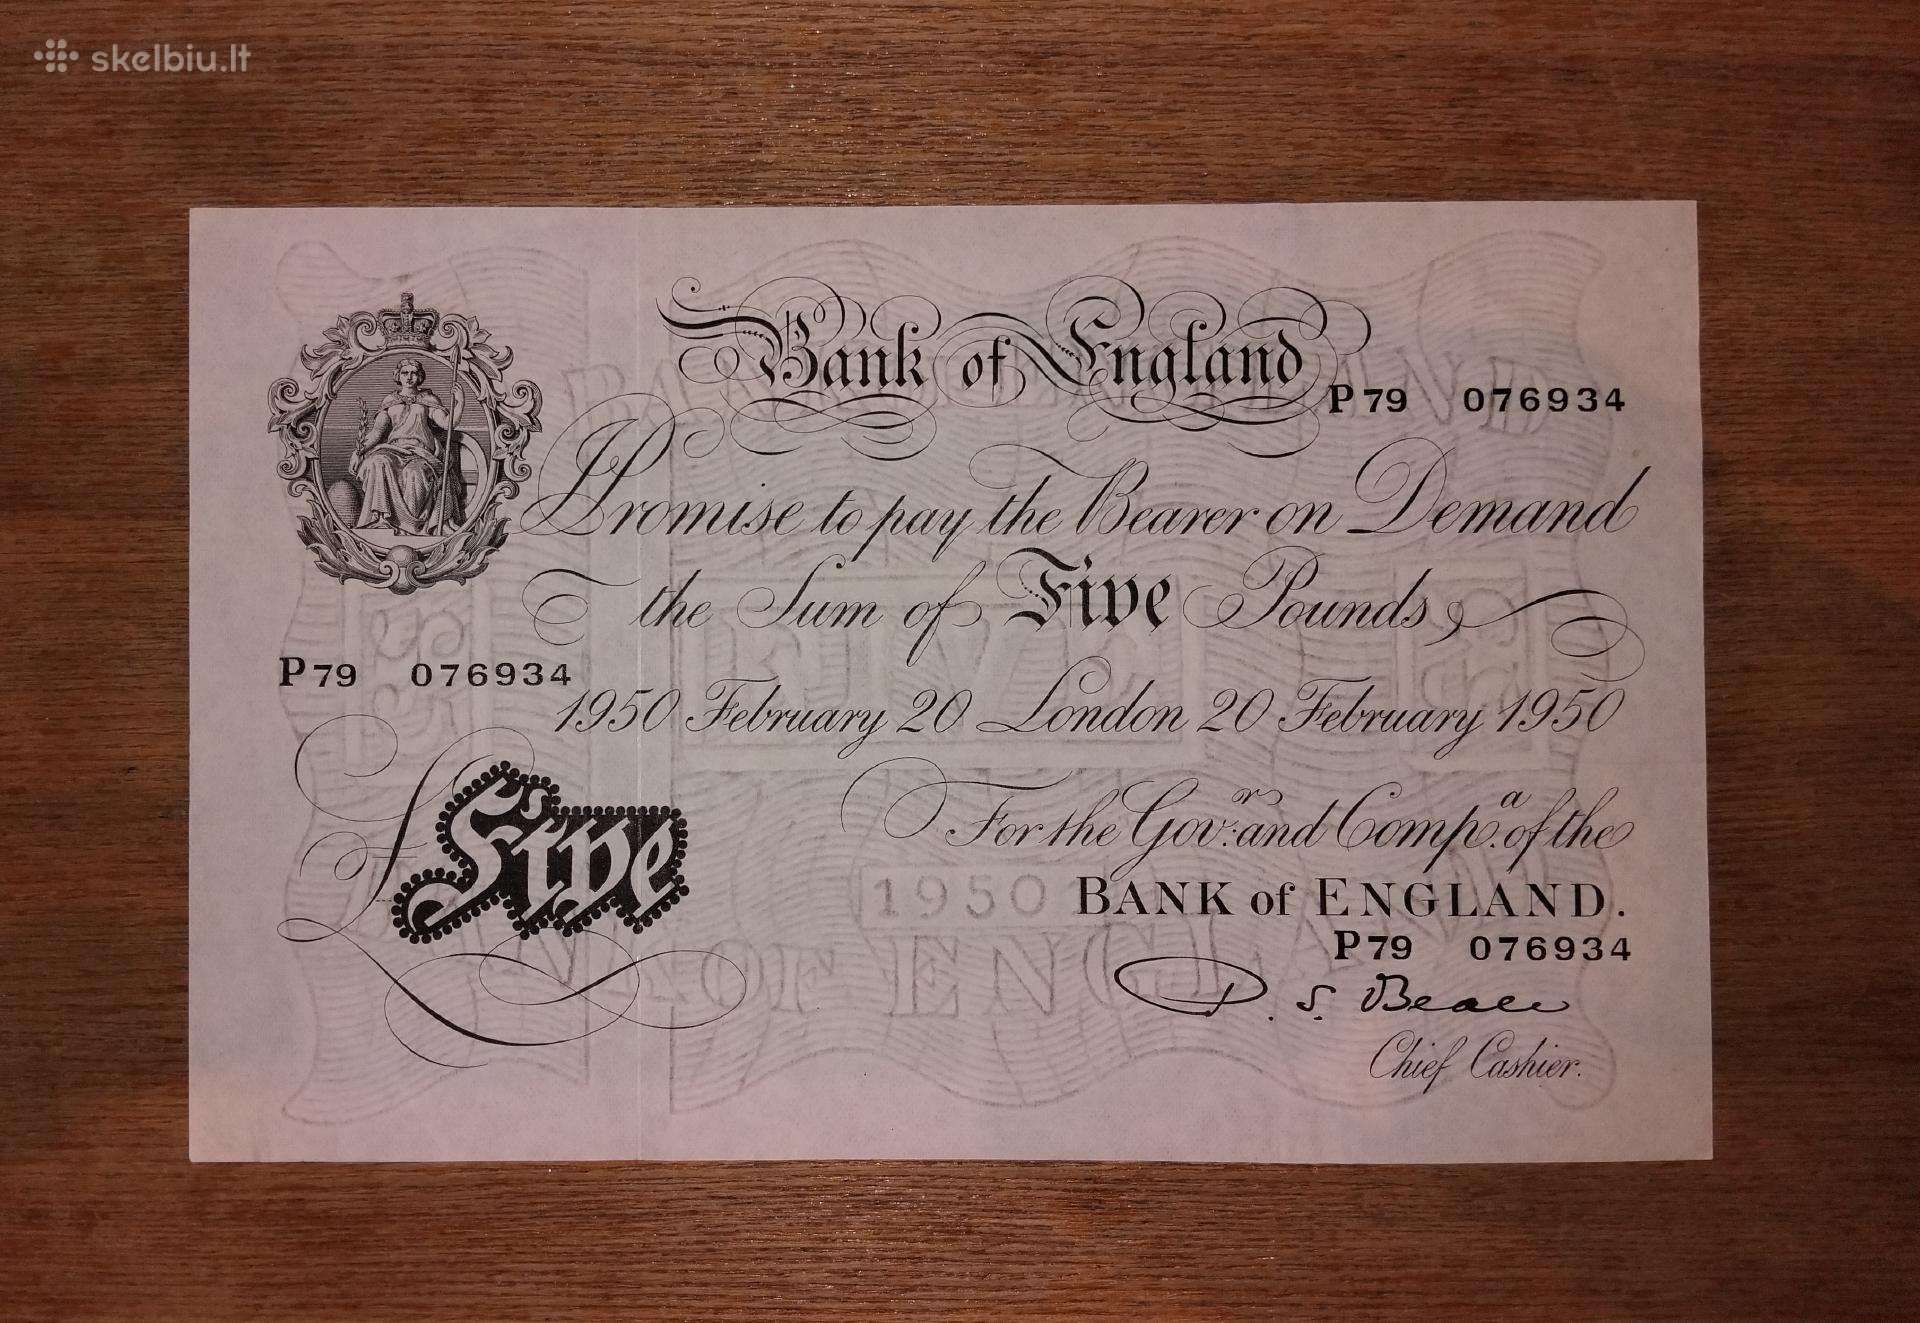 skelbiu.lt
Bank of England
P 79 076934
I Promise to pay the Bearer on Demand
the Sum of Five Pounds
P 79 076934
1950 February 20 London 20 February 1950
For the Govr. and Compa. of the
Five
1950
BANK of ENGLAND.
P 79 076934
BANK OF ENGLAND
P. S. Beale
Chief Cashier.